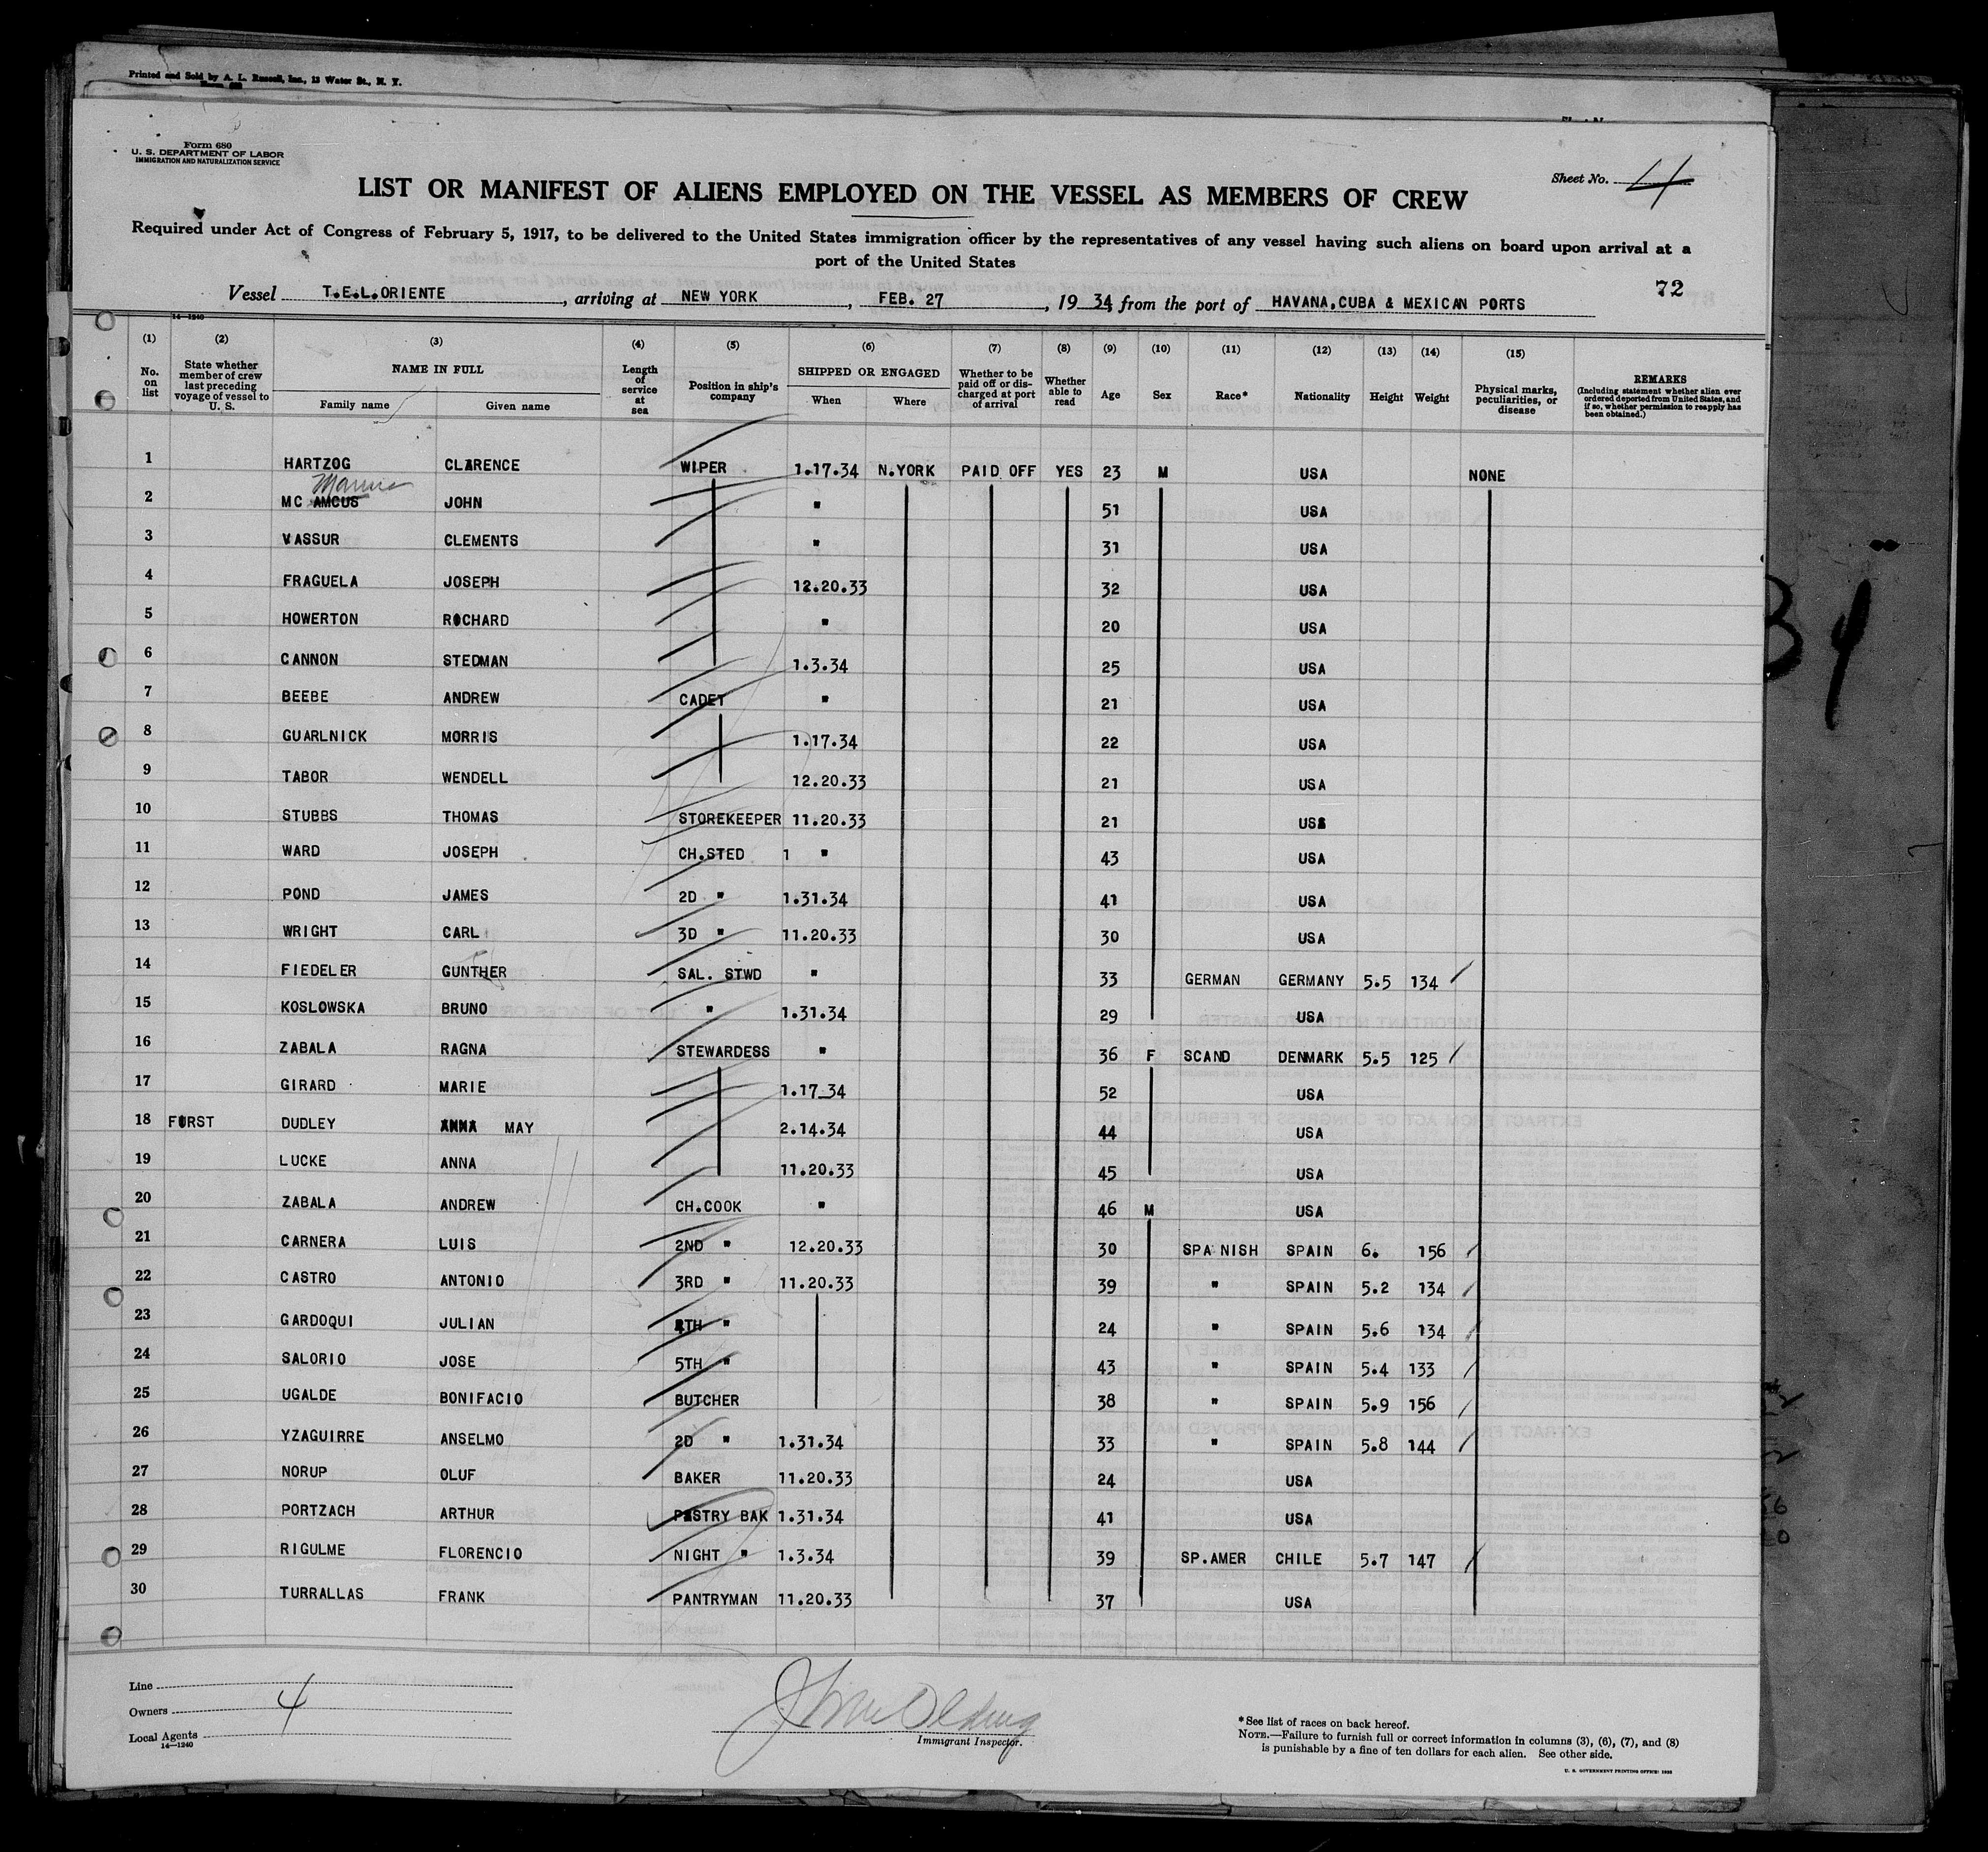 Printed and Sold by A. L. Russell, Inc., 13 Water St., N. Y.
Form 680
U. S. DEPARTMENT OF LABOR
IMMIGRATION AND NATURALIZATION SERVICE
Sheet No. 4
LIST OR MANIFEST OF ALIENS EMPLOYED ON THE VESSEL AS MEMBERS OF CREW
Required under Act of Congress of February 5, 1917, to be delivered to the United States immigration officer by the representatives of any vessel having such aliens on board upon arrival at a
port of the United States
72
Vessel T.E.L.ORIENTE, arriving at NEW YORK, FEB. 27, 1934, from the port of HAVANA,CUBA & MEXICAN PORTS
14-1240
(1) (2) (3) (4) (5) (6) (7) (8) (9) (10) (11) (12) (13) (14) (15)
No. on list State whether member of crew last preceding voyage of vessel to U. S. NAME IN FULL Family name Given name Length of service at sea Position in ship's company SHIPPED OR ENGAGED When Where Whether to be paid off or discharged at port of arrival Whether able to read Age Sex Race* Nationality Height Weight Physical marks, peculiarities, or disease REMARKS (Including statement whether alien ever ordered deported from United States, and if so, whether permission to reapply has been obtained.)
1 HARTZOG CLARENCE WIPER 1.17.34 N.YORK PAID OFF YES 23 M USA NONE
2 MC AMCUS JOHN " 51 USA
3 VASSUR CLEMENTS " 31 USA
4 FRAGUELA JOSEPH 12.20.33 32 USA
5 HOWERTON ROCHARD " 20 USA
6 CANNON STEDMAN 1.3.34 25 USA
7 BEEBE ANDREW CADET " 21 USA
8 GUARLNICK MORRIS 1.17.34 22 USA
9 TABOR WENDELL 12.20.33 21 USA
10 STUBBS THOMAS STOREKEEPER 11.20.33 21 USA
11 WARD JOSEPH CH.STED 1 " 43 USA
12 POND JAMES 2D " 1.31.34 41 USA
13 WRIGHT CARL 3D " 11.20.33 30 USA
14 FIEDELER GUNTHER SAL. STWD " 33 GERMAN GERMANY 5.5 134
15 KOSLOWSKA BRUNO " 1.31.34 29 USA
16 ZABALA RAGNA STEWARDESS " 36 F SCAND DENMARK 5.5 125
17 GIRARD MARIE 1.17.34 52 USA
18 FIRST DUDLEY ANNA MAY 2.14.34 44 USA
19 LUCKE ANNA 11.20.33 45 USA
20 ZABALA ANDREW CH.COOK " 46 M USA
21 CARNERA LUIS 2ND " 12.20.33 30 SPANISH SPAIN 6. 156
22 CASTRO ANTONIO 3RD " 11.20.33 39 " SPAIN 5.2 134
23 GARDOQUI JULIAN 4TH " 24 " SPAIN 5.6 134
24 SALORIO JOSE 5TH " 43 " SPAIN 5.4 133
25 UGALDE BONIFACIO BUTCHER 38 " SPAIN 5.9 156
26 YZAGUIRRE ANSELMO 2D " 1.31.34 33 " SPAIN 5.8 144
27 NORUP OLUF BAKER 11.20.33 24 USA
28 PORTZACH ARTHUR PASTRY BAK 1.31.34 41 USA
29 RIGULME FLORENCIO NIGHT " 1.3.34 39 SP.AMER CHILE 5.7 147
30 TURRALLAS FRANK PANTRYMAN 11.20.33 37 USA
Line
Owners
Local Agents
14-1240
4
Immigrant Inspector.
*See list of races on back hereof.
NOTE.—Failure to furnish full or correct information in columns (3), (6), (7), and (8)
is punishable by a fine of ten dollars for each alien. See other side.
U. S. GOVERNMENT PRINTING OFFICE: 1933
34